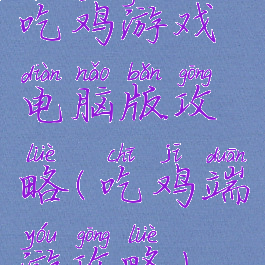 吃鸡游戏
diàn nǎo bǎn gōng
电脑版攻
lüè chī jī duān
略(吃鸡端
yóu gōng lüè
游攻略)